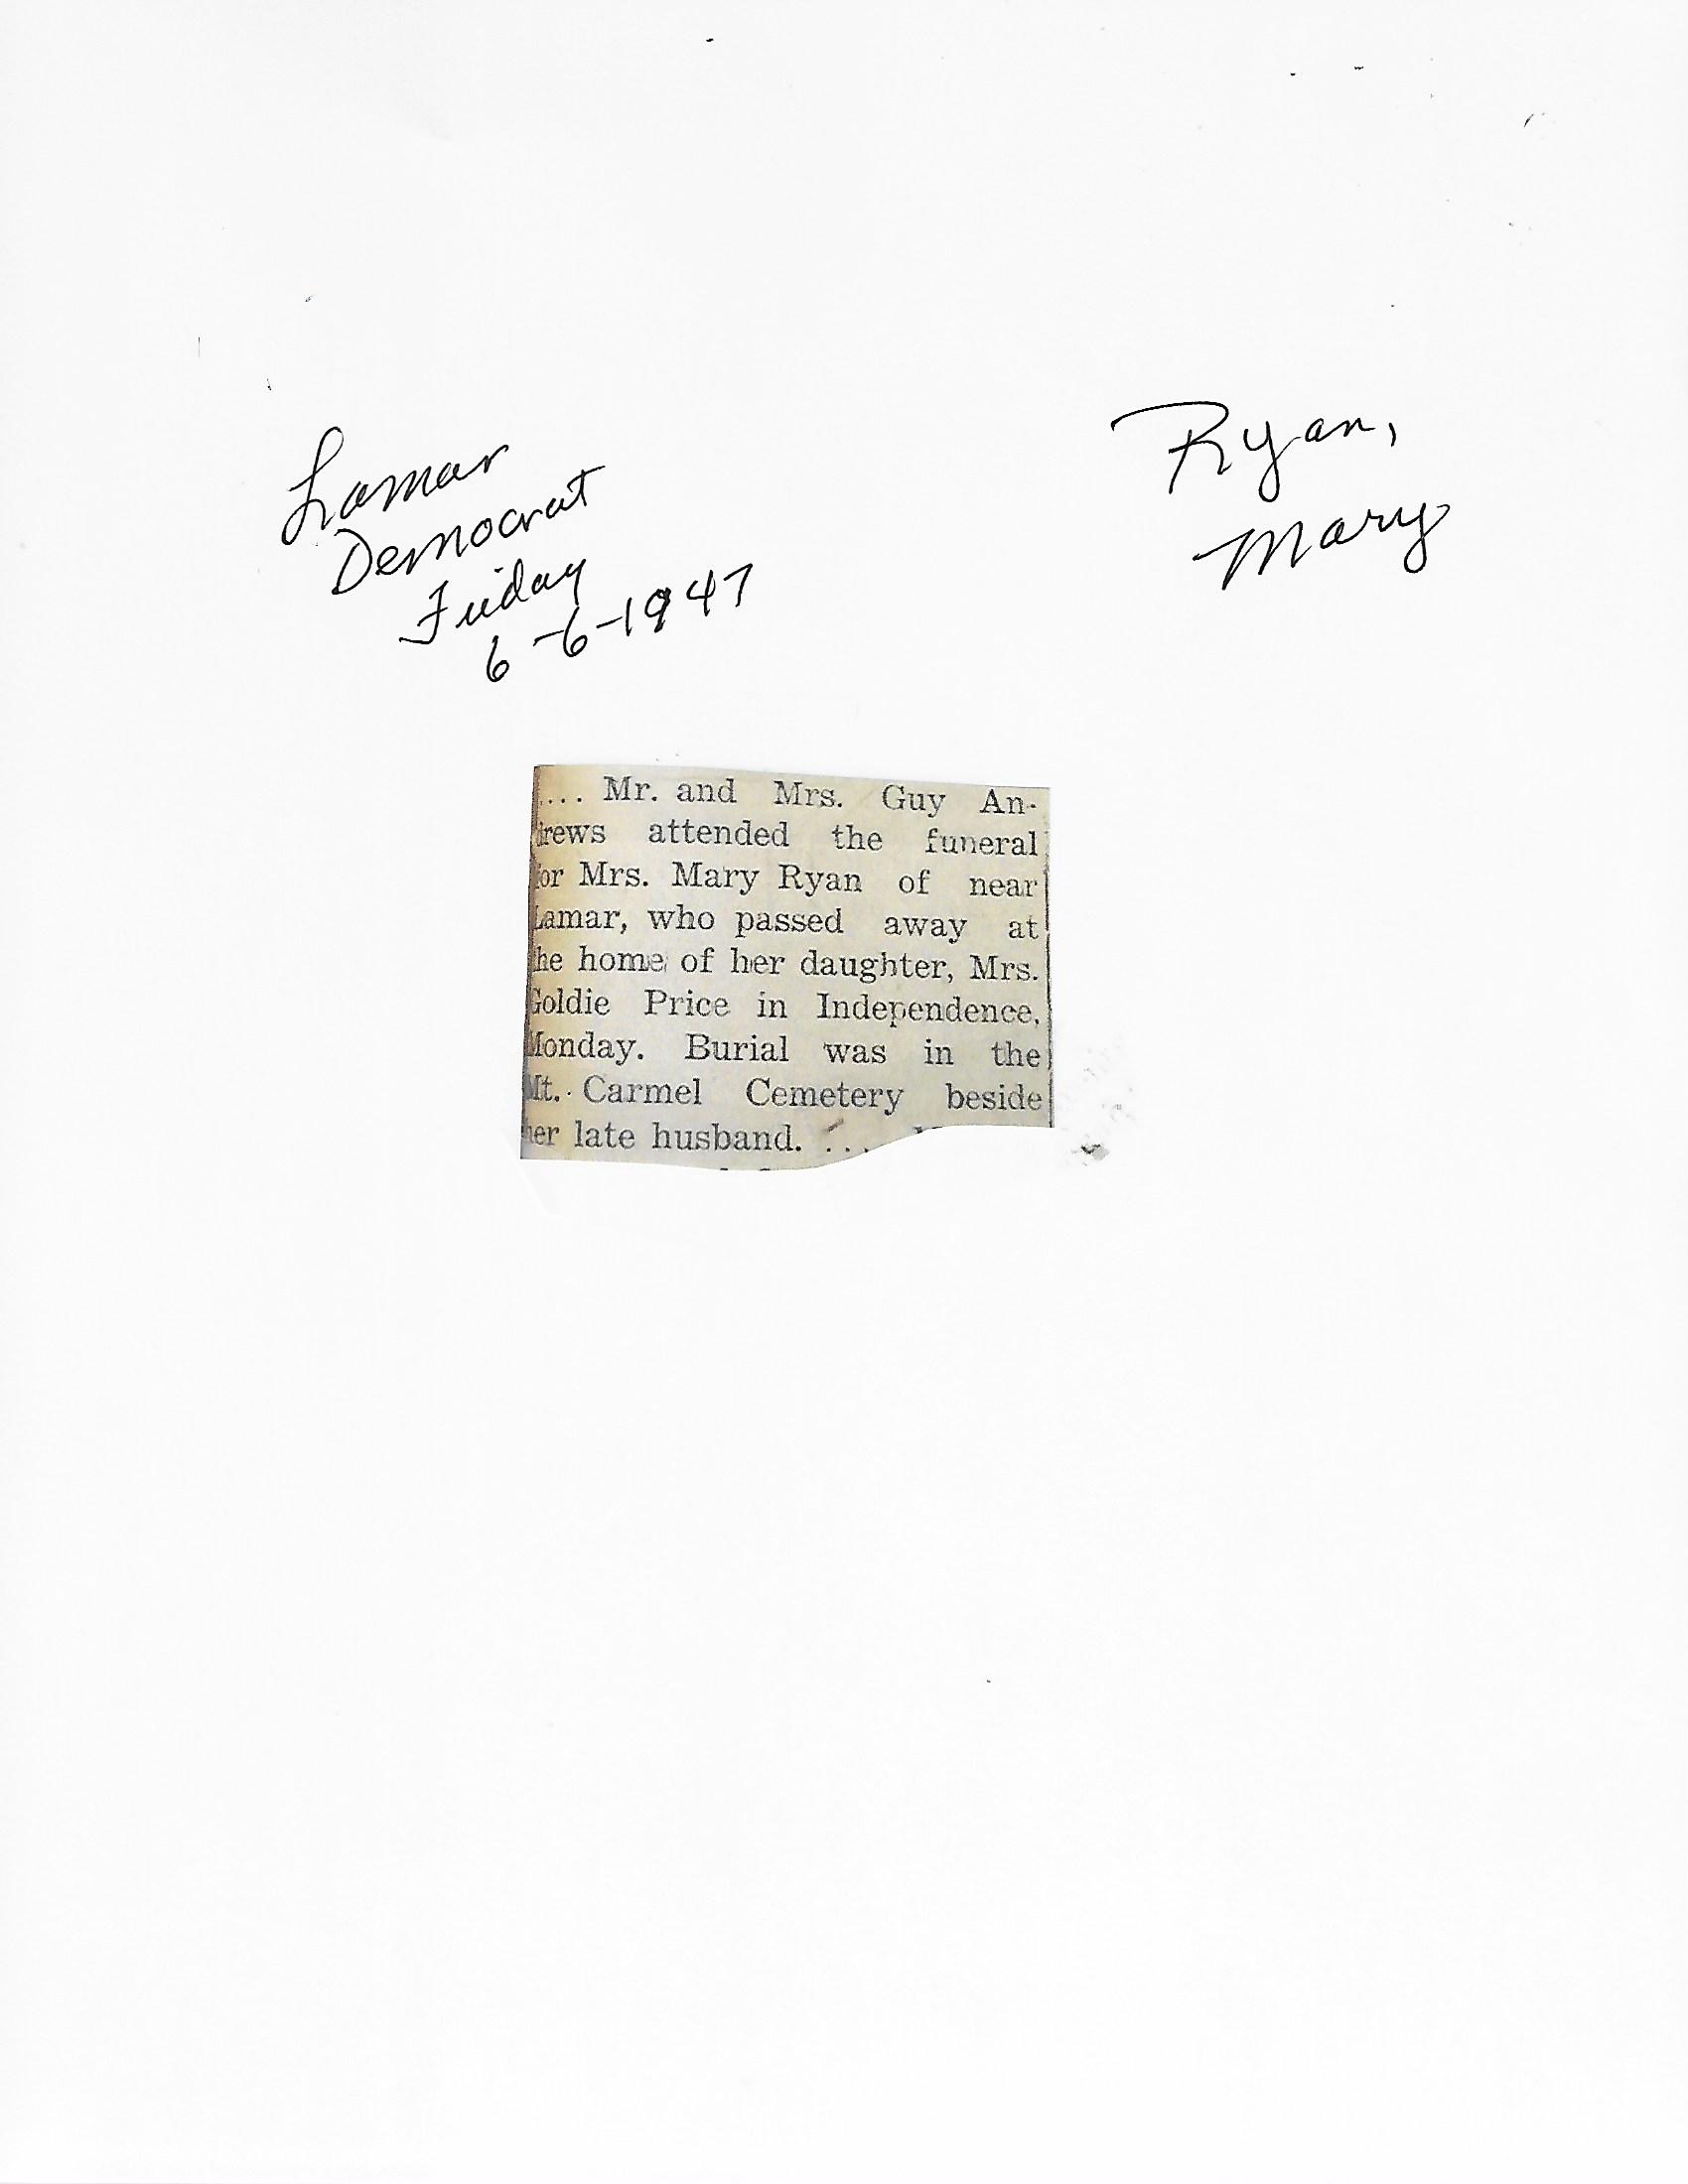 Lamar
Democrat
Friday
6-6-1947
Ryan,
Mary
.... Mr. and Mrs. Guy An-
drews attended the funeral
for Mrs. Mary Ryan of near
Lamar, who passed away at
the home of her daughter, Mrs.
Goldie Price in Independence,
Monday. Burial was in the
Mt. Carmel Cemetery beside
her late husband. ...